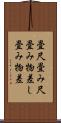 畳尺畳み尺
畳み物差し
畳み物差